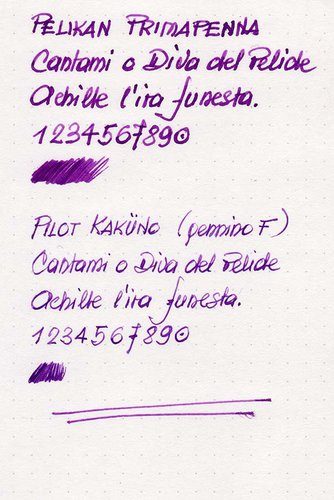 PELIKAN PRIMAPENNA
Cantami o Diva del Pelide
Achille l'ira funesta.
1234567890
PILOT KAKÜNO (pennino F)
Cantami o Diva del Pelide
Achille l'ira funesta.
1234567890